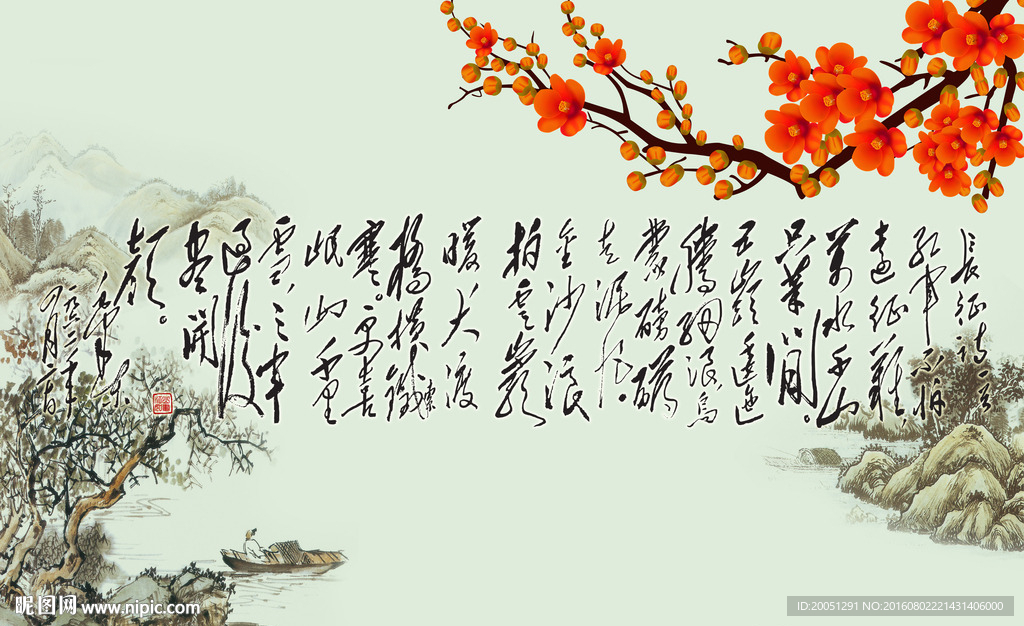 長征诗一首
紅軍不怕
遠征難，
萬水千山
只等閒。
五嶺逶迤
騰細浪，烏
蒙磅礴
走泥丸。
金沙浪
拍雲崖
暖，大渡
橋横鐵索
寒。更喜
岷山千里
雪，三軍
過後
盡開
顏。
毛澤東
一九六二年
四月廿日
昵图网 www.nipic.com
ID:20051291 NO:20160802221431406000